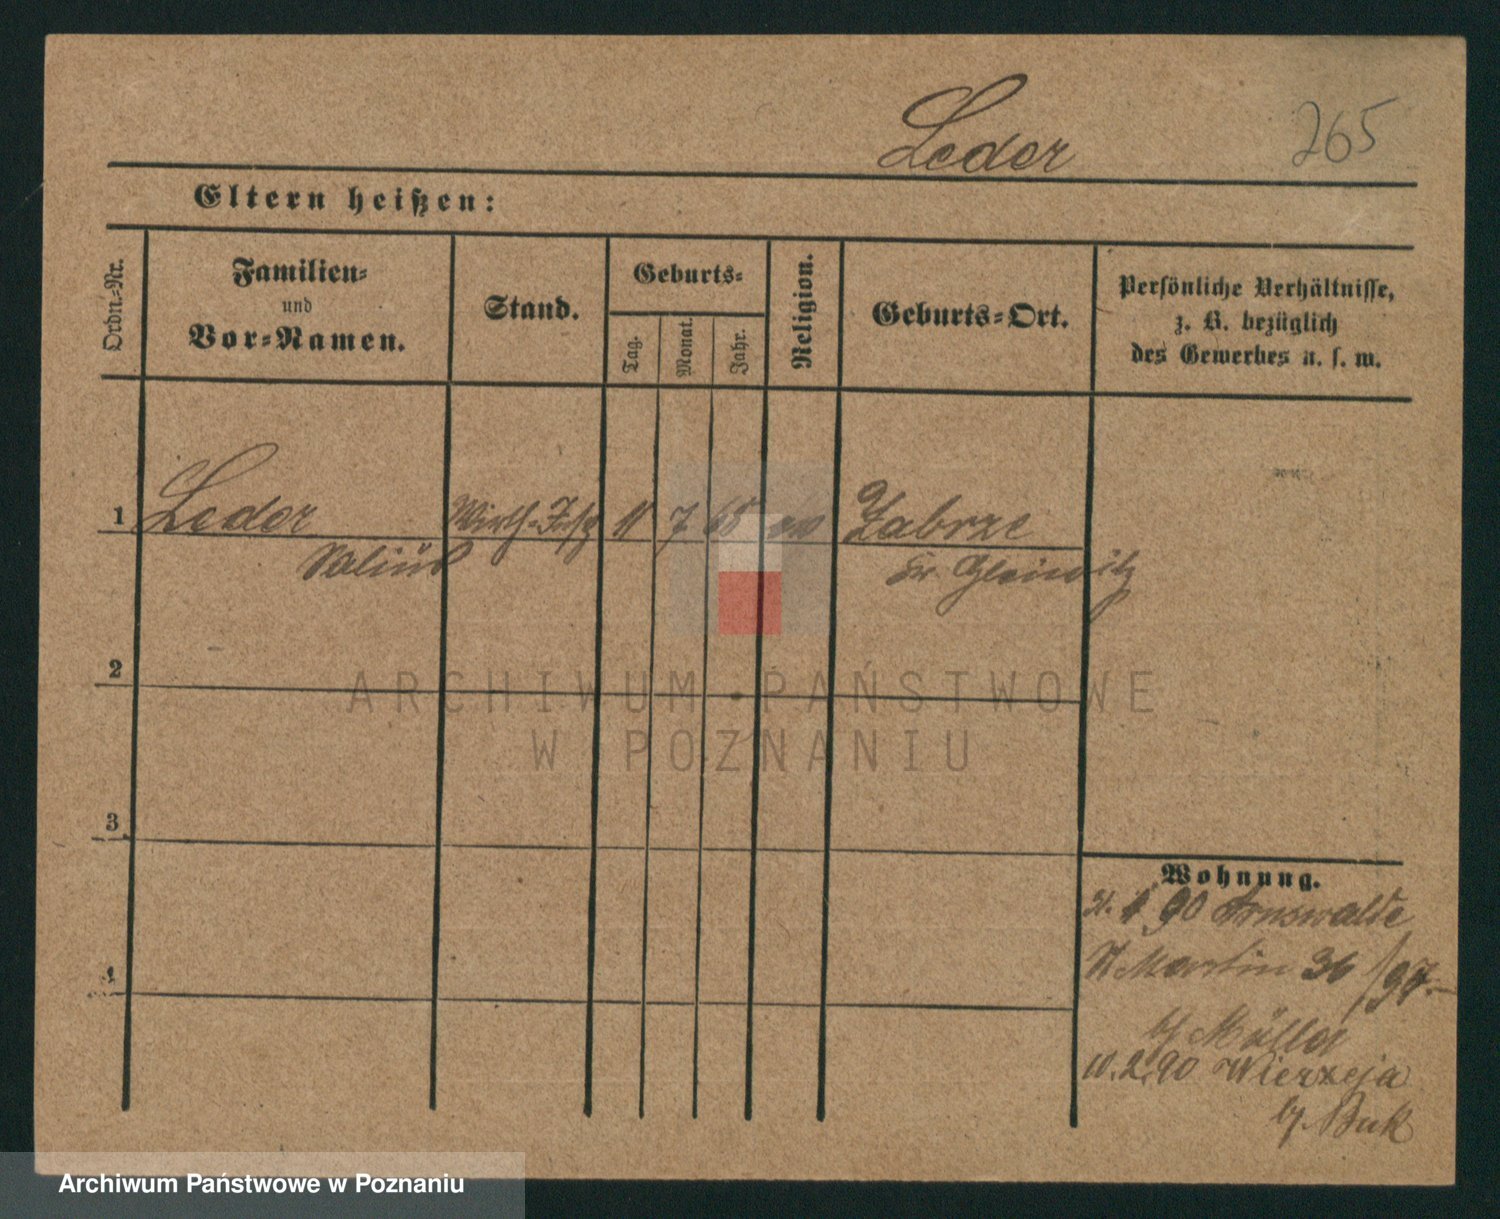 Leder
265
Eltern heißen:
Ordn.-Nr.
Familien-
und
Vor-Namen.
Stand.
Geburts-
Tag.
Monat.
Jahr.
Religion.
Geburts-Ort.
Persönliche Verhältnisse,
z. B. bezüglich
des Gewerbes u. s. w.
1 Leder Wirth-Insp 11 7 65 Zabrze
Kr Gleiwitz
2
ARCHIWUM PAŃSTWOWE
W POZNANIU
3
4
Wohnung.
21. 1 90 Arnswalde
St Martin 36 /
b/ Müller
10.2.90 Wierzeja
b/. Buk
Archiwum Państwowe w Poznaniu